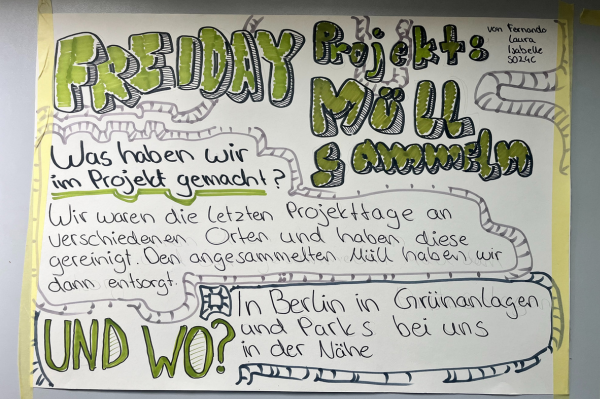 FREIDAY Projekt:
MÜLL
sammeln
von Fernando
Laura
Isabelle
SO24C
Was haben wir
im Projekt gemacht?
Wir waren die letzten Projekttage an
verschiedenen Orten und haben diese
gereinigt. Den angesammelten Müll haben wir
dann entsorgt.
UND WO?
In Berlin in Grünanlagen
und Parks bei uns
in der Nähe